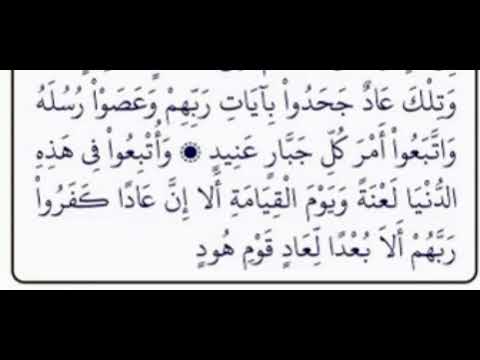 وَتِلْكَ عَادٌ جَحَدُواْ بِآيَاتِ رَبِّهِمْ وَعَصَوْاْ رُسُلَهُ
وَاتَّبَعُواْ أَمْرَ كُلِّ جَبَّارٍ عَنِيدٍ ۝ وَأُتْبِعُواْ فِي هَذِهِ
الدُّنْيَا لَعْنَةً وَيَوْمَ الْقِيَامَةِ أَلا إِنَّ عَادًا كَفَرُواْ
رَبَّهُمْ أَلاَ بُعْدًا لِّعَادٍ قَوْمِ هُودٍ